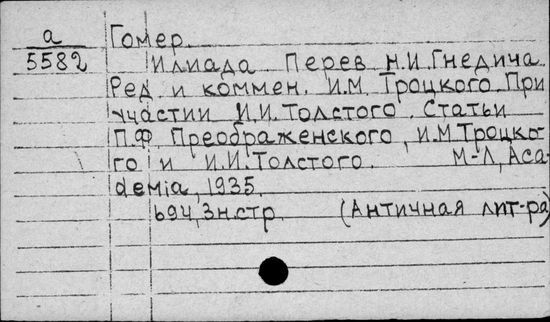 а Гомер.
5582 Илиада Перев Н.И. Гнедича.
Ред и коммен. И.М. Троцкого. При
участии И.И. Толстого. Статьи
П.Ф. Преображенского, И.М Троцко-
го и И.И. Толстого. М-Л, Aca-
demia, 1935.
694, 3н.стр. (Античная лит-ра)